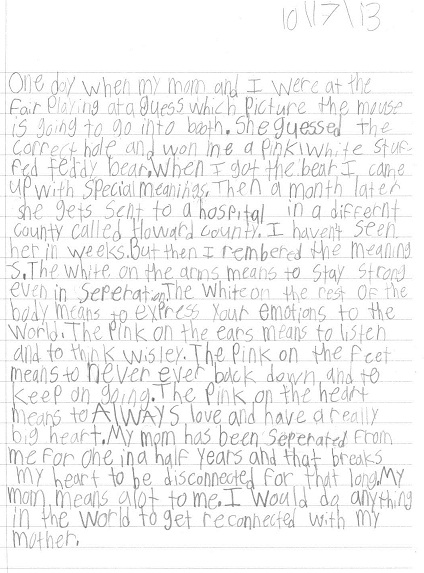 10/17/13
One day when my mom and I were at the
Fair Playing at a guess which Picture the mouse
is going to go into booth. She guessed the
correct hole and won me a Pink\white stuf-
fed teddy bear. When I got the bear I came
up with special meanings. Then a month later
she gets sent to a hospital in a differnt
county called Howard county. I havent seen
her in weeks. But then I rembered the meaning
s. The white on the arms means to stay strong
even in Seperation. The White on the rest of the
body means to express your emotions to the
World. The Pink on the ears means to listen
and to think wisley. The Pink on the feet
means to never ever back down and to
keep on going. The Pink on the heart
means to ALWAYS love and have a really
big heart. My mom has been seperated from
me for one in a half years and that breaks
my heart to be disconnected for that long. My
mom means alot to me. I would do anything
in the world to get reconnected with my
mother.